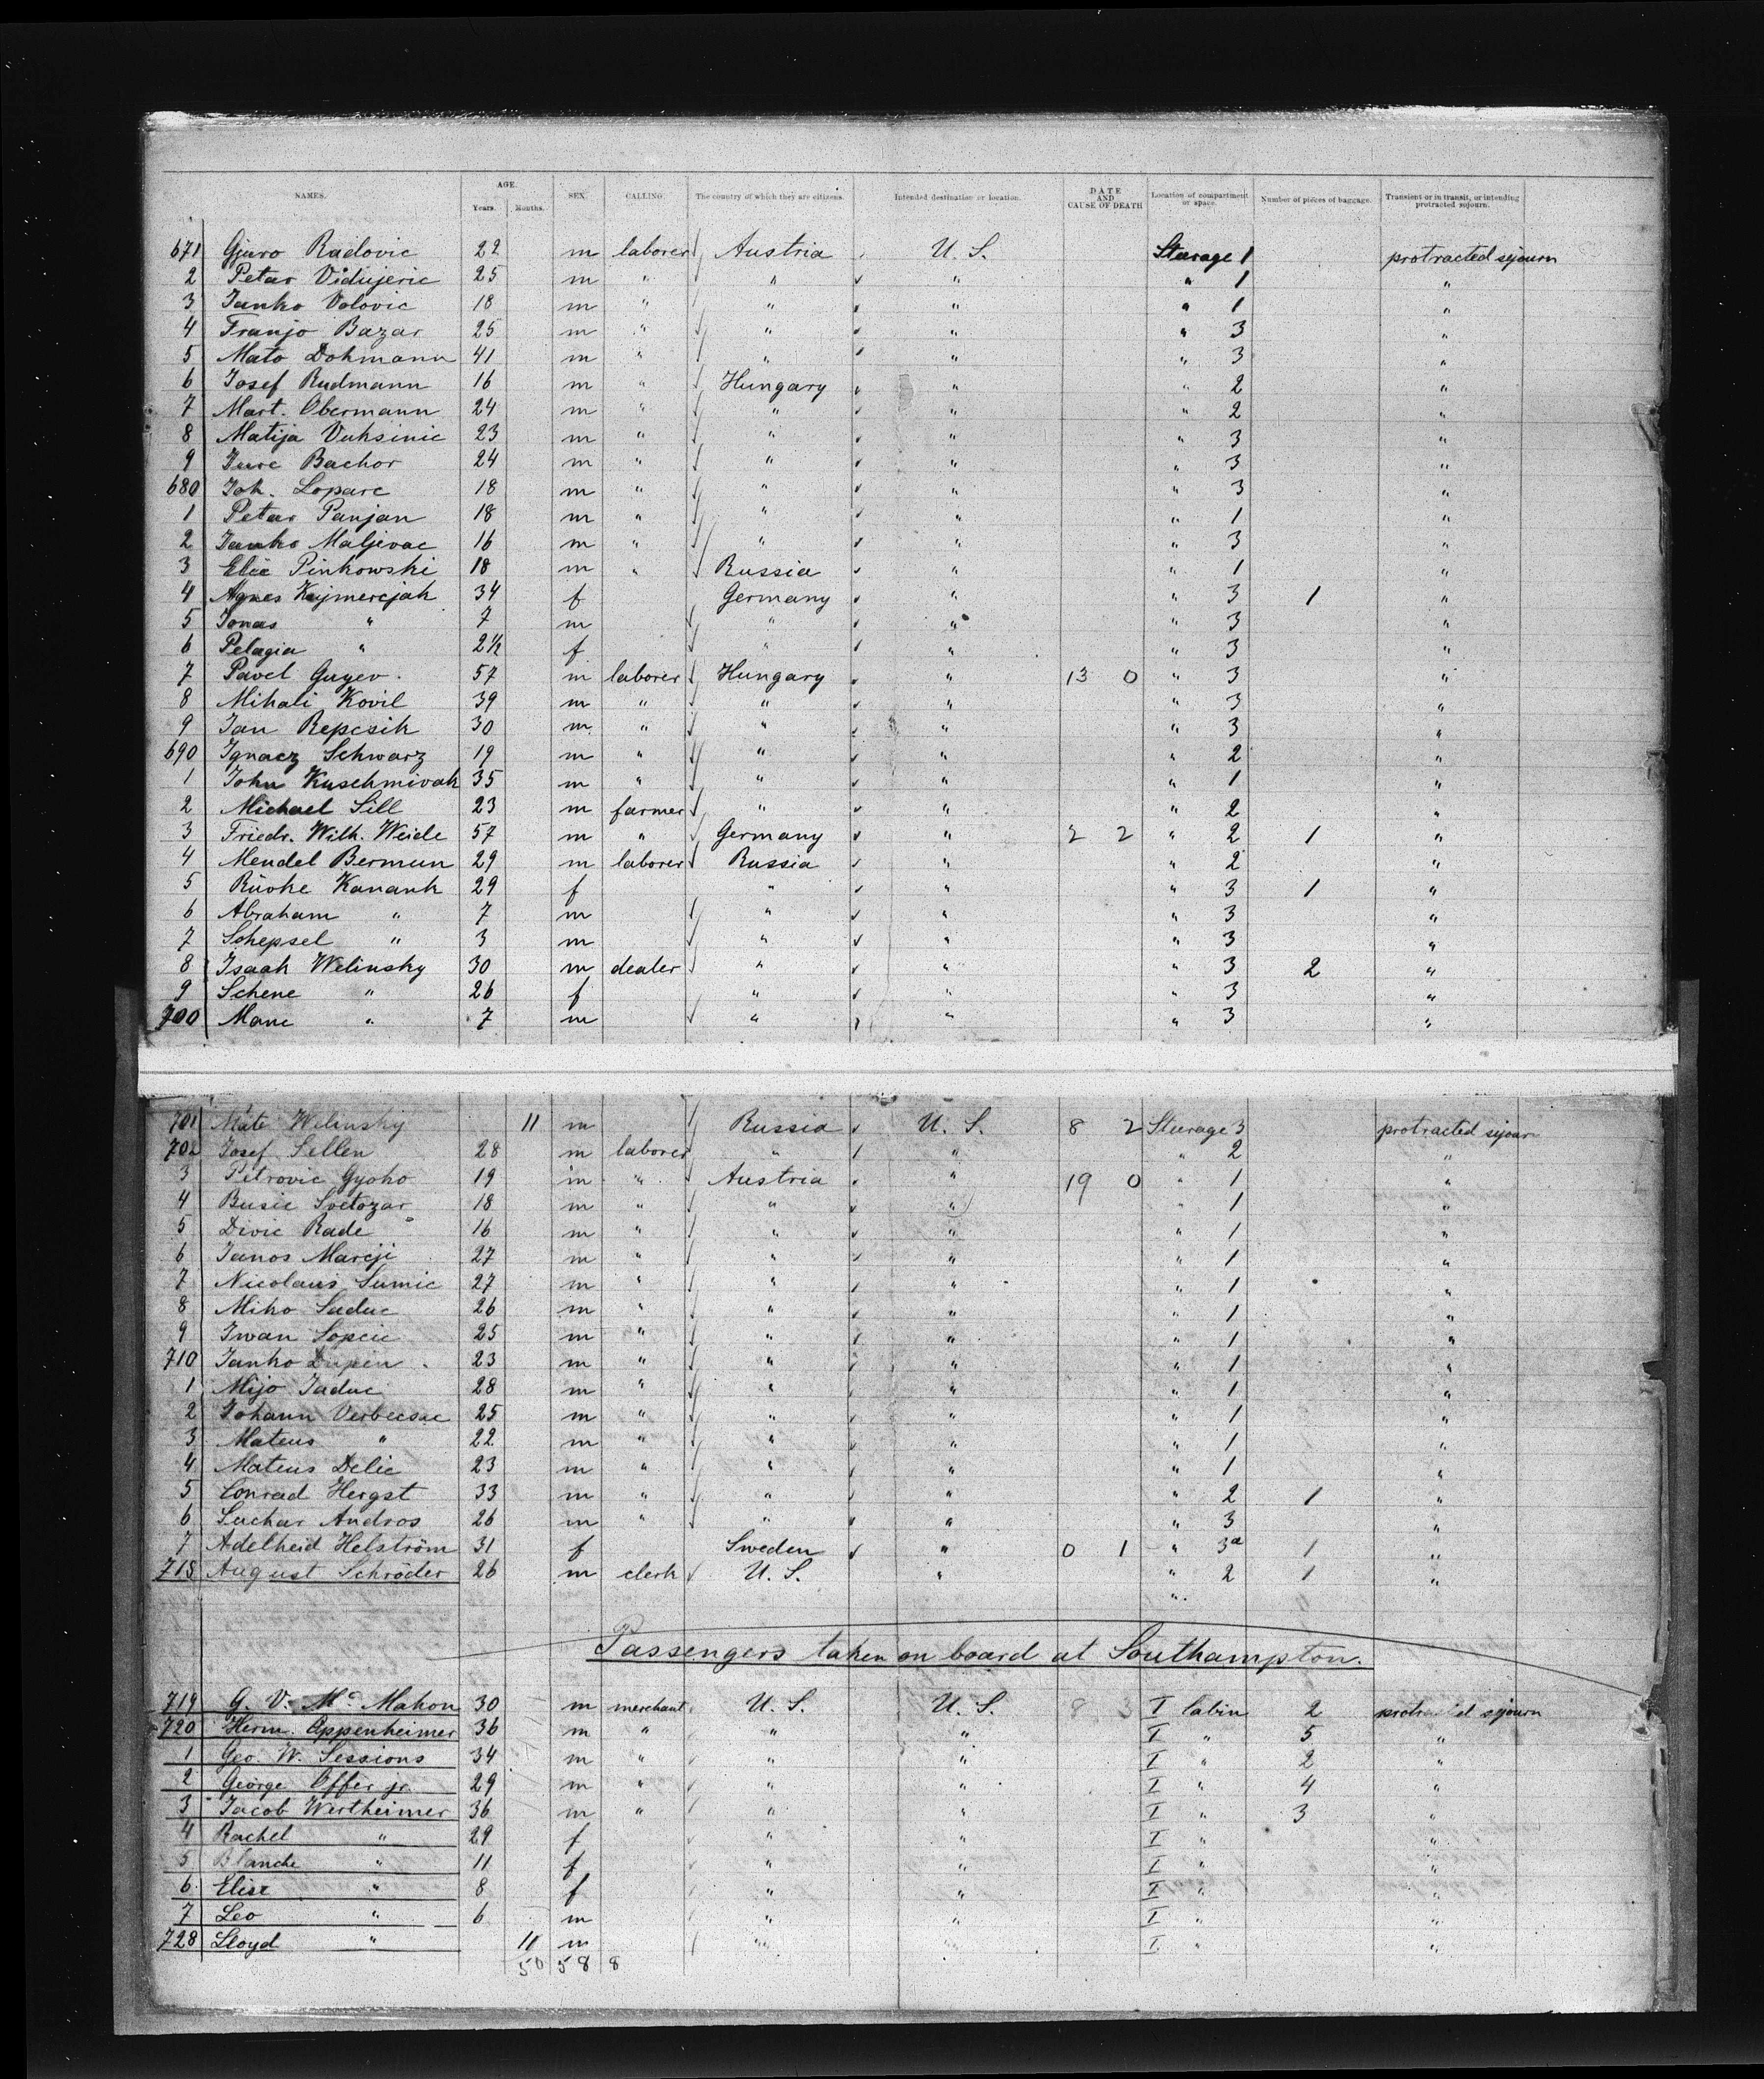 NAMES. AGE. Years. Months. SEX. CALLING. The country of which they are citizens. Intended destination or location. DATE AND CAUSE OF DEATH Location of compartment or space. Number of pieces of baggage. Transient or in transit, or intending protracted sojourn.
671 Gjuro Radovic 22 m laborer Austria U. S. Steerage 1 protracted sejourn
2 Petar Vidujeric 25 m " " " " 1 "
3 Janko Volovic 18 m " " " " 1 "
4 Franjo Bazar 25 m " " " " 3 "
5 Mato Dohmann 41 m " " " " 3 "
6 Josef Rudmann 16 m " Hungary " " 2 "
7 Mart. Obermann 24 m " " " " 2 "
8 Matija Vuksinic 23 m " " " " 3 "
9 Jure Bachor 24 m " " " " 3 "
680 Joh. Loparc 18 m " " " " 3 "
1 Petar Panjan 18 m " " " " 1 "
2 Janko Maljevac 16 m " " " " 3 "
3 Elie Pinkowski 18 m " Russia " " 1 "
4 Agnes 34 f Germany " " 3 1 "
5 Jonas " 7 m " " " 3 "
6 Pelagia " 2½ f " " " 3 "
7 Pavel Guyev 57 m laborer Hungary " 13 0 " 3 "
8 Mihali Kovil 39 m " " " " 3 "
9 Jan Repcsik 30 m " " " " 3 "
690 Ignacz Schwarz 19 m " " " " 2 "
1 John Kuschmivak 35 m " " " " 1 "
2 Michael Sill 23 m farmer " " " 2 "
3 Friedr. Wilh. Weide 57 m " Germany " 2 2 " 2 1 "
4 Mendel Bermun 29 m laborer Russia " " 2 "
5 Rüvke Kanank 29 f " " " 3 1 "
6 Abraham " 7 m " " " 3 "
7 Schepsel " 3 m " " " 3 "
8 Isaak Welinsky 30 m dealer " " " 3 2 "
9 Schene " 26 f " " " 3 "
700 Mane " 7 m " " " 3 "
701 Mate Welinsky 11 m Russia U. S. 8 2 Steerage 3 protracted sejourn
702 Josef Sellen 28 m laborer " " " 2 "
3 Petrovic Gyoko 19 m " Austria " 19 0 " 1 "
4 Busic Svetozar 18 m " " " " 1 "
5 Divic Rade 16 m " " " " 1 "
6 Janos Marcji 27 m " " " " 1 "
7 Nicolaus Sumic 27 m " " " " 1 "
8 Miko Saduc 26 m " " " " 1 "
9 Iwan Sopcic 25 m " " " " 1 "
710 Janko 23 m " " " " 1 "
1 Mijo Jaduc 28 m " " " " 1 "
2 Johann Verbecsac 25 m " " " " 1 "
3 Mateus " 22 m " " " " 1 "
4 Mateus Delic 23 m " " " " 1 "
5 Conrad Hergst 33 m " " " " 2 1 "
6 Suchar Andros 26 m " " " " 3 "
7 Adelheid Helström 31 f Sweden " 0 1 " 3a 1 "
718 August Schröder 26 m clerk U. S. " " 2 1 "
Passengers taken on board at Southampton.
719 G. V. Mc Mahon 30 m merchant U. S. U. S. 8 3 I Cabin 2 protracted sejourn
720 Herm. Oppenheimer 36 m " " " I " 5 "
1 Geo. W. Sessions 34 m " " " I " 2 "
2 George Offer jr. 29 m " " " I " 4 "
3 Jacob Wertheimer 36 m " " " I " 3 "
4 Rachel " 29 f " " I " "
5 Blanche " 11 f " " I " "
6 Elise " 8 f " " I " "
7 Leo " 6 m " " I " "
728 Lloyd " 11 m " " I " "
50 58 8